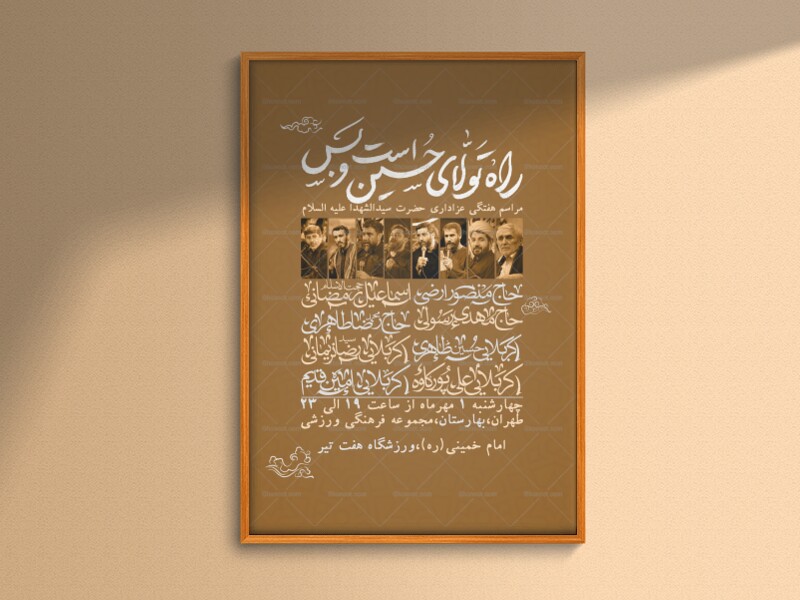 راه تولای حسین است و بس
مراسم هفتگی عزاداری حضرت سیدالشهدا علیه السلام
حاج منصور ارضی حجت‌الاسلام اسماعیل رمضانی
حاج مهدی رسولی حاج رضا طاهری
کربلایی حسین طاهری کربلایی رضا نریمانی
کربلایی علی پورکاوه کربلایی امین قدیم
چهارشنبه ۱ مهرماه از ساعت ۱۹ الی ۲۳
طهران،بهارستان،مجموعه فرهنگی ورزشی
امام خمینی(ره)،ورزشگاه هفت تیر